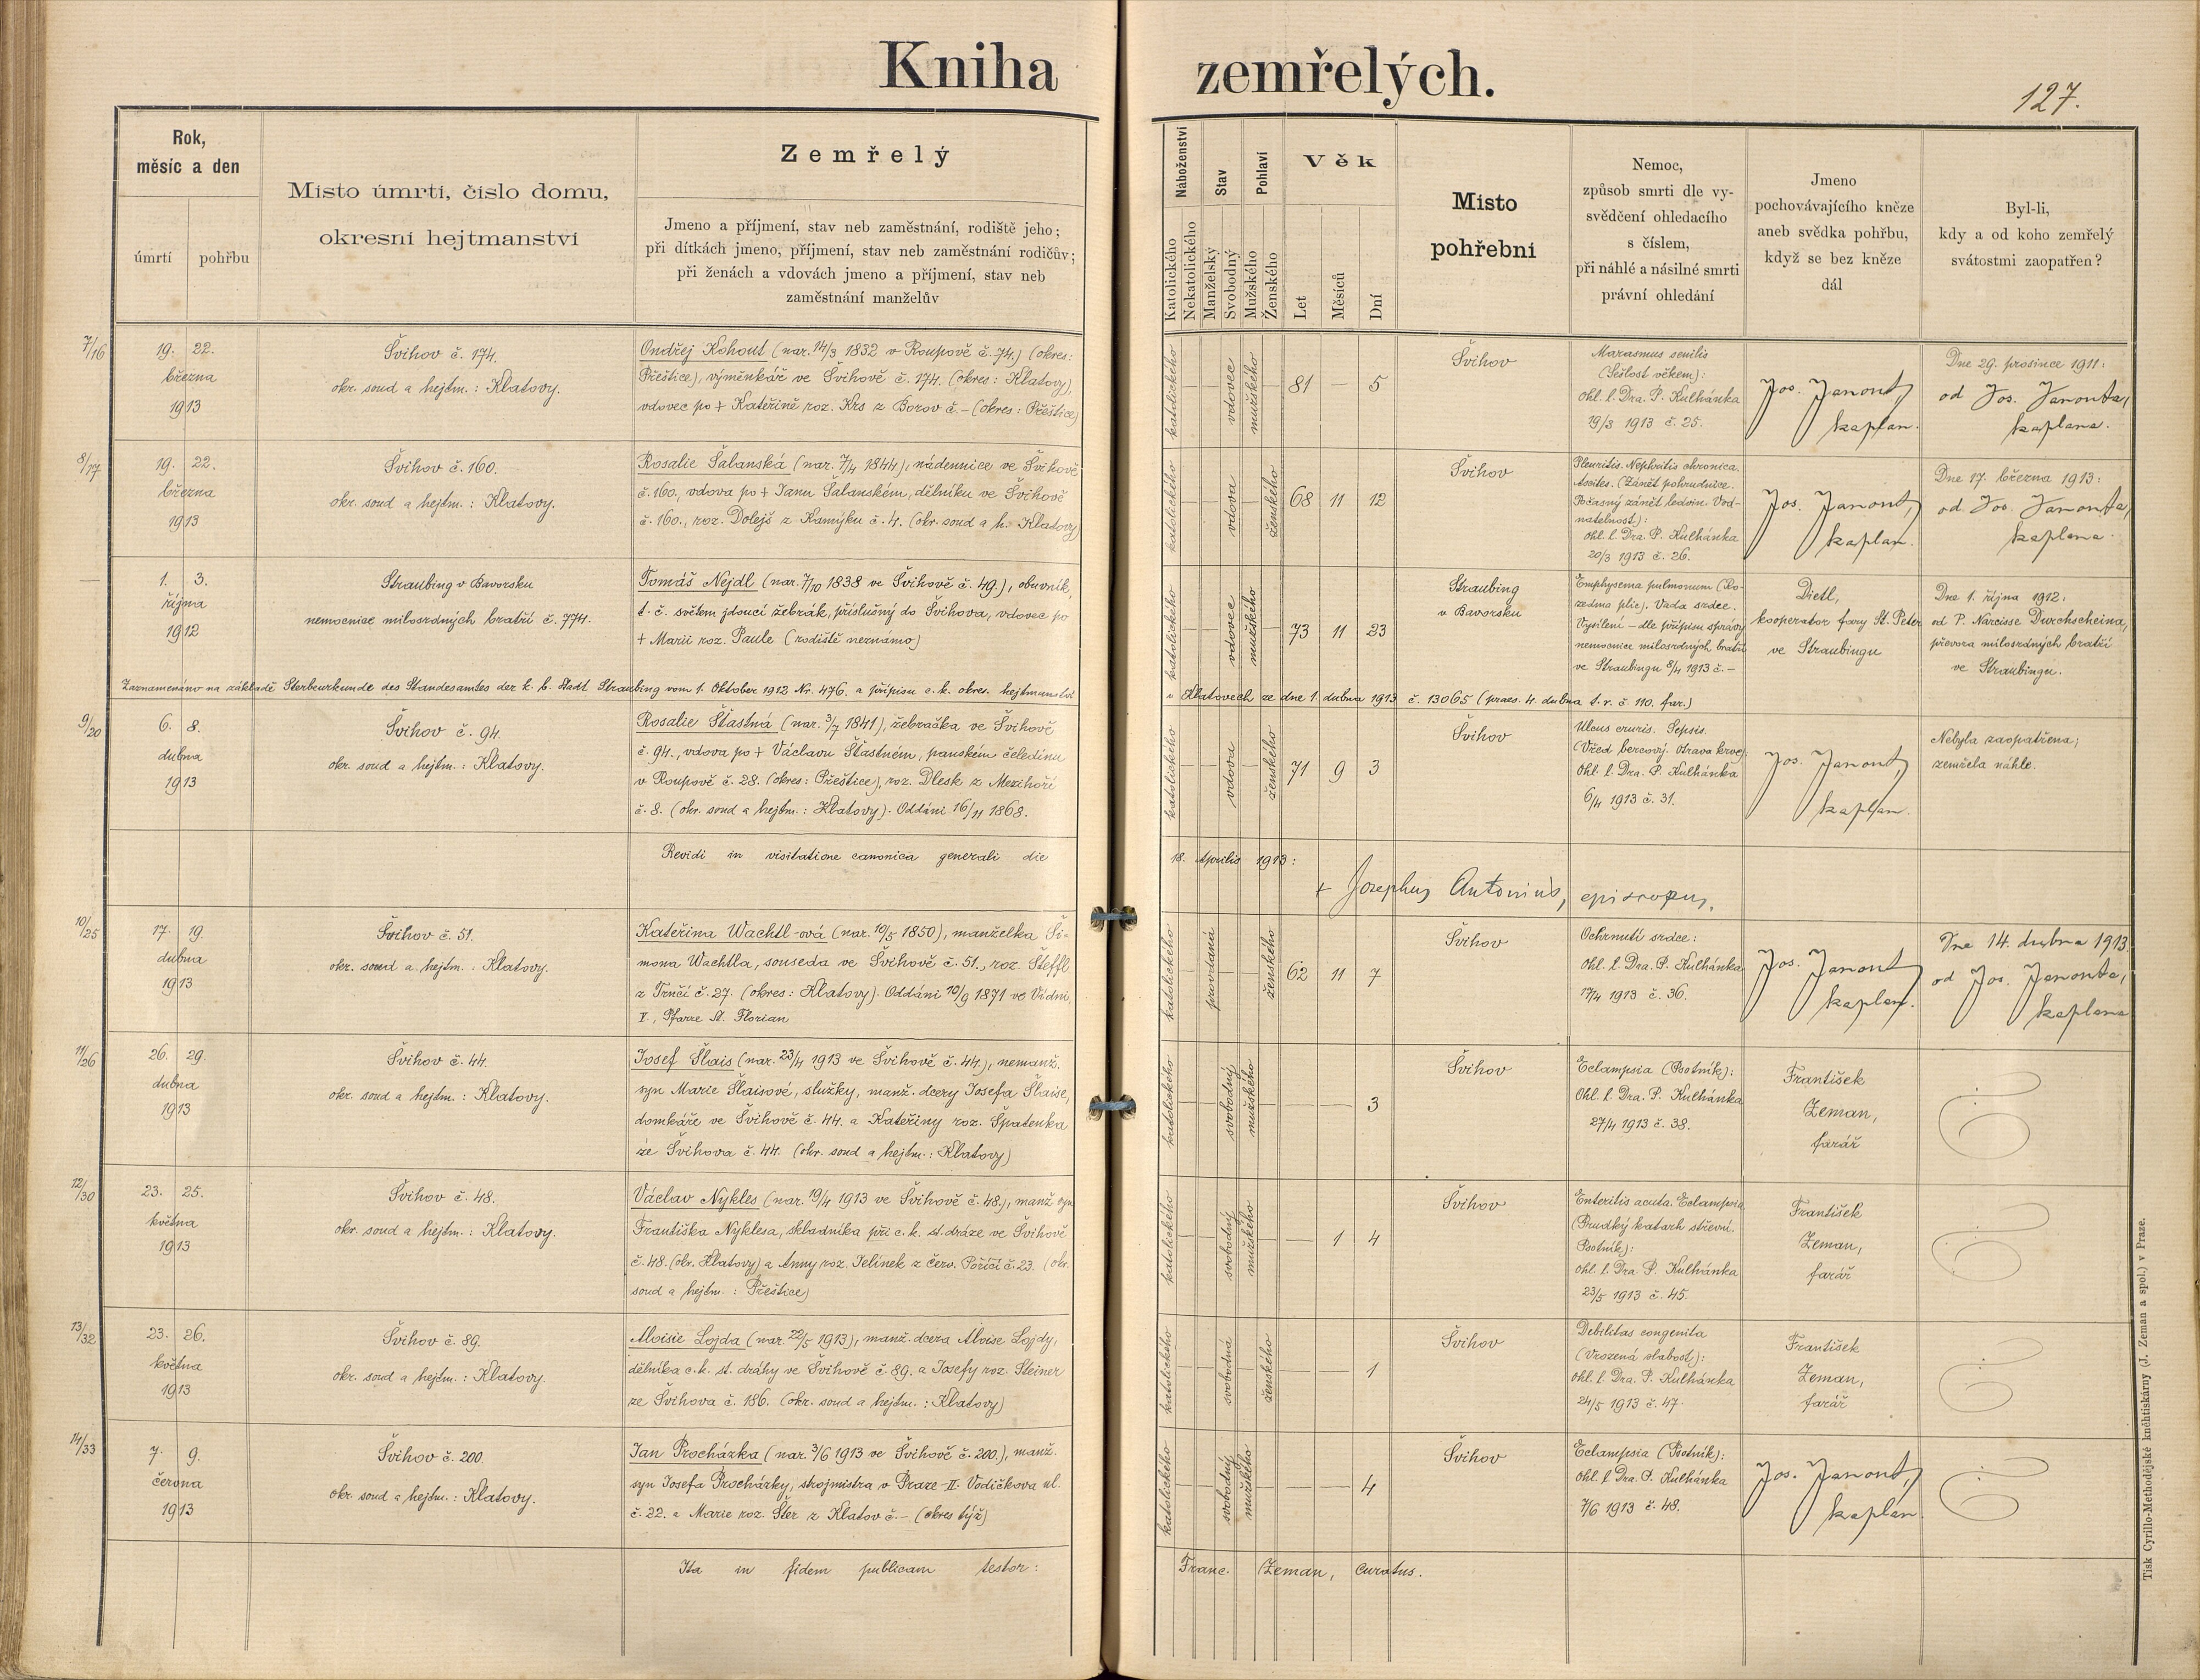 Kniha zemřelých.
127.
Rok,
měsíc a den
úmrtí
pohřbu
Místo úmrtí, číslo domu,
okresní hejtmanství
Zemřelý
Jmeno a příjmení, stav neb zaměstnání, rodiště jeho;
při dítkách jmeno, příjmení, stav neb zaměstnání rodičův;
při ženách a vdovách jmeno a příjmení, stav neb
zaměstnání manželův
Náboženství
Katolického
Nekatolického
Stav
Manželský
Svobodný
Pohlaví
Mužského
Ženského
Věk
Let
Měsíců
Dní
Místo
pohřební
Nemoc,
způsob smrti dle vy-
svědčení ohledacího
s číslem,
při náhlé a násilné smrti
právní ohledání
Jmeno
pochovávajícího kněze
aneb svědka pohřbu,
když se bez kněze
dál
Byl-li,
kdy a od koho zemřelý
svátostmi zaopatřen?
7/16
19. 22.
března
1913
Švihov č. 174.
okr. soud a hejtm.: Klatovy.
Ondřej Kohout (nar. 14/3 1832 v Roupově č. 74.) (okres:
Přeštice), výměnkář ve Švihově č. 174. (okres: Klatovy),
vdovec po + Kateřině roz. Krs z Borov č. - (okres: Přeštice)
katolického — — vdovec mužského — 81 — 5
Švihov
Marasmus senilis
(Sešlost věkem):
ohl. l. Dra. P. Kulhánka
19/3 1913 č. 25.
Jos. Janout,
kaplan.
Dne 29. prosince 1911:
od Jos. Janouta,
kaplana.
8/17
19. 22.
března
1913
Švihov č. 160.
okr. soud a hejtm.: Klatovy.
Rosalie Šalanská (nar. 7/4 1844), nádennice ve Švihově
č. 160., vdova po + Janu Šalanském, dělníku ve Švihově
č. 160., roz. Dolejš z Kamýku č. 4. (okr. soud a h. Klatovy)
katolického — — vdova — ženského 68 11 12
Švihov
Pleuritis. Nephritis chronica.
Ascites. (Zánět pohrudnice.
Počasný zánět ledvin. Vod-
natelnost.):
ohl. l. Dra. P. Kulhánka
20/3 1913 č. 26.
Jos. Janout,
kaplan.
Dne 17. března 1913:
od. Jos. Janouta,
kaplana.
—
1. 3.
října
1912
Straubing v Bavorsku
nemocnice milosrdných bratří č. 774.
Tomáš Nejdl (nar. 7/10 1838 ve Švihově č. 49.), obuvník,
t. č. světem jdoucí žebrák, příslušný do Švihova, vdovec po
+ Marii roz. Paule (rodiště neznámo)
katolického — — vdovec mužského — 73 11 23
Straubing
v Bavorsku
Emphysema pulmonum (Ro-
zedma plic). Vada srdce.
Vysílení – dle přípisu správy
nemocnice milosrdných bratří
ve Straubingu 8/4 1913 č. –
Dietl,
kooperator fary St. Peter
ve Straubingu
Dne 1. října 1912:
od P. Narcisse Durchscheina,
převora milosrdných bratří
ve Straubingu.
Zaznamenáno na základě Sterbeurkunde des Standesamtes der k. b. Stadt Straubing vom 1. Oktober 1912 Nr. 476. a přípisu c. k. okres. hejtmanství
v Klatovech ze dne 1. dubna 1913 č. 13065 (praes. 4. dubna t. r. č. 110. far.)
9/20
6. 8.
dubna
1913
Švihov č. 94.
okr. soud a hejtm.: Klatovy.
Rosalie Šťastná (nar. 3/7 1841), žebračka ve Švihově
č. 94., vdova po + Václavu Šťastném, panském čeledínu
v Roupově č. 28. (okres: Přeštice), roz. Dlesk z Mezihoří
č. 8. (okr. soud a hejtm.: Klatovy). Oddáni 16/11 1868.
katolického — — vdova — ženského 71 9 3
Švihov
Ulcus cruris. Sepsis.
(Vřed bercový. Otrava krve):
Ohl. l. Dra. P. Kulhánka
6/4 1913 č. 31.
Jos. Janout,
kaplan.
Nebyla zaopatřena;
zemřela náhle.
Revidi in visitatione canonica generali die
18. Aprilis 1913:
+ Josephus Antonius, episcopus.
10/25
17. 19.
dubna
1913
Švihov č. 51.
okr. soud a hejtm.: Klatovy.
Kateřina Wachtl-ová (nar. 10/5 1850), manželka Ši-
mona Wachtla, souseda ve Švihově č. 51., roz. Steffl
z Trnčí č. 27. (okres: Klatovy). Oddáni 10/9 1871 ve Vídni,
V., Pfarre St. Florian
katolického — provdaná — — ženského 62 11 7
Švihov
Ochrnutí srdce:
Ohl. l. Dra. P. Kulhánka
17/4 1913 č. 36.
Jos. Janout
kaplan.
Dne 14. dubna 1913.
od Jos. Janouta,
kaplana
11/26
26. 29.
dubna
1913
Švihov č. 44.
okr. soud a hejtm.: Klatovy.
Josef Šlais (nar. 23/4 1913 ve Švihově č. 44.), nemanž.
syn Marie Šlaisové, služky, manž. dcery Josefa Šlaise,
domkáře ve Švihově č. 44. a Kateřiny roz. Špatenka
ze Švihova č. 44. (okr. soud a hejtm.: Klatovy)
katolického — — svobodný mužského — — — 3
Švihov
Eclampsia (Psotník):
Ohl. l. Dra. P. Kulhánka
27/4 1913 č. 38.
František
Zeman,
farář
12/30
23. 25.
května
1913
Švihov č. 48.
okr. soud a hejtm.: Klatovy.
Václav Nykles (nar. 19/4 1913 ve Švihově č. 48.), manž. syn
Františka Nyklesa, skladníka při c. k. st. dráze ve Švihově
č. 48. (okr. Klatovy) a Anny roz. Jelínek z červ. Poříčí č. 23. (okr.
soud a hejtm.: Přeštice)
katolického — — svobodný mužského — — 1 4
Švihov
Enteritis acuta. Eclampsia
(Prudký katarh střevní.
Psotník):
ohl. l. Dra P. Kulhánka
23/5 1913 č. 45.
František
Zeman,
farář
13/32
23. 26.
května
1913
Švihov č. 89.
okr. soud a hejtm.: Klatovy.
Aloisie Lojda (nar. 22/5 1913), manž. dcera Aloise Lojdy,
dělníka c. k. st. dráhy ve Švihově č. 89. a Josefy roz. Steiner
ze Švihova č. 186. (okr. soud a hejtm.: Klatovy)
katolického — — svobodná — ženského — — 1
Švihov
Debilitas congenita
(Vrozená slabost):
ohl. l. Dra. P. Kulhánka
24/5 1913 č. 47.
František
Zeman,
farář
14/33
7. 9.
června
1913
Švihov č. 200.
okr. soud a hejtm.: Klatovy.
Jan Procházka (nar. 3/6 1913 ve Švihově č. 200.), manž.
syn Josefa Procházky, strojmistra v Praze-II. Vodičkova ul.
č. 22. a Marie roz. Šter z Klatov č. – (okres týž)
katolického — — svobodný mužského — — — 4
Švihov
Eclampsia (Psotník):
ohl. l Dra. P. Kulhánka
7/6 1913 č. 48.
Jos. Janout,
kaplan.
Ita in fidem publicam testor:
Franc. Zeman, curatus.
Tisk Cyrillo-Methodějské knihtiskárny (J. Zeman a spol.) v Praze.